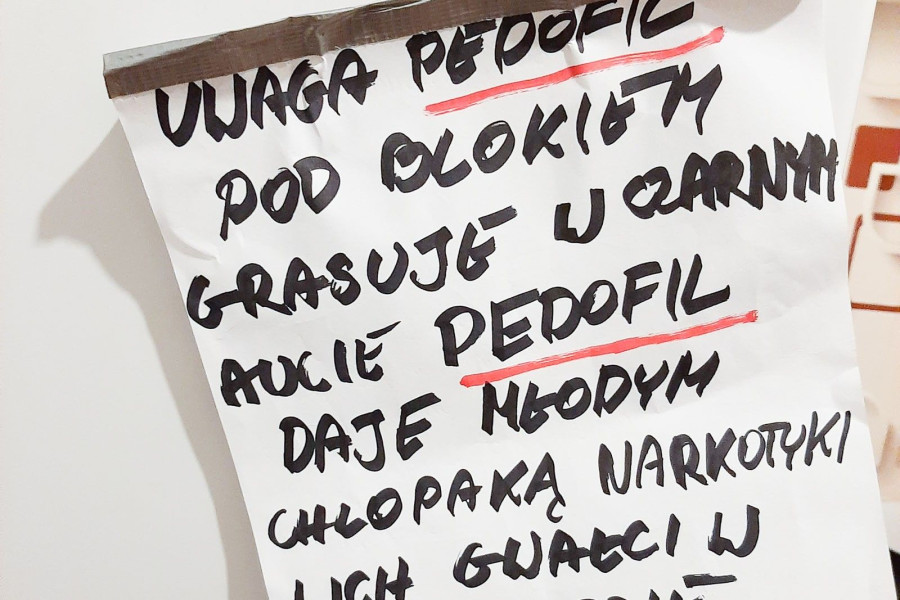 UWAGA PEDOFIL
POD BLOKIEM
GRASUJE W CZARNYM
AUCIE PEDOFIL
DAJE MŁODYM
CHŁOPAKĄ NARKOTYKI
I ICH GWAŁCI W